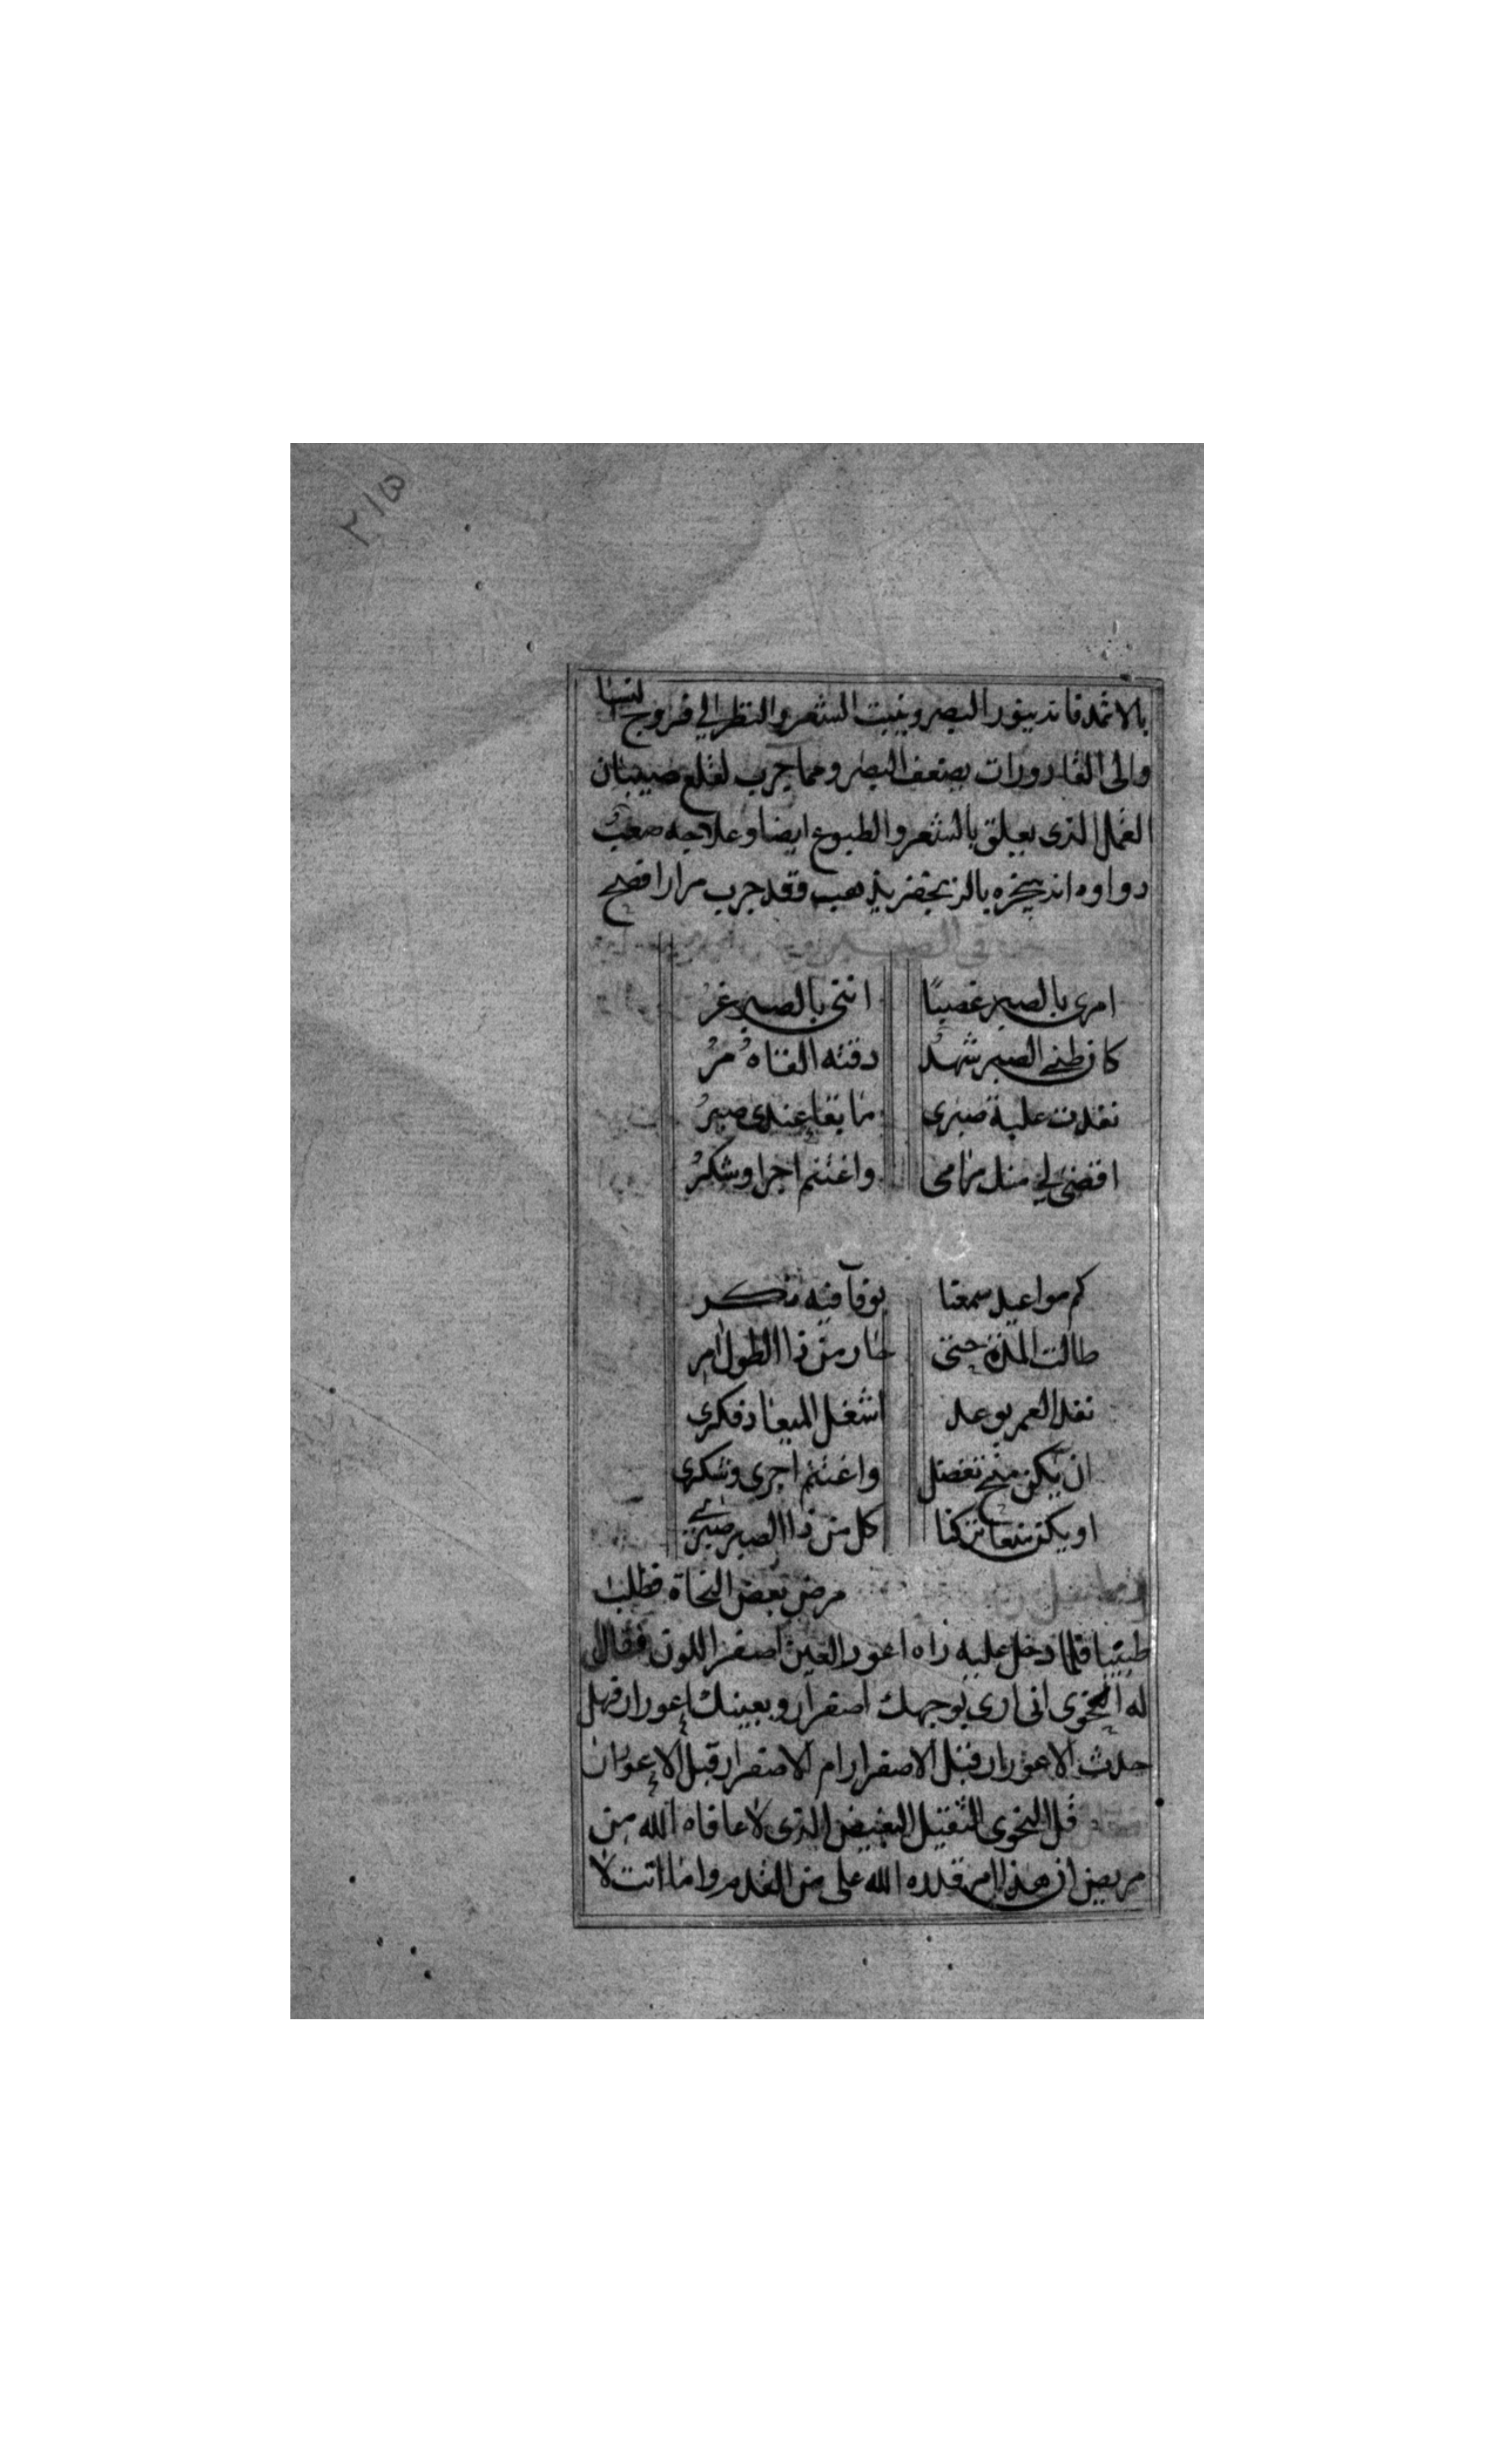 ٢١٥
بالاثمد فانه ينور البصر وينبت الشعر والنظر الى فروج النسا
والى القادورات يضعف البصر ومما جرب لقلع صيبان
القمل الذى يعلق بالشعر والطبوع ايضا وعلاجه صعبُ
دواوه انه يبخره بالزنجفر يذهب فقد جرب مرارا فصح
فى الصبر
امرى بالصبر غصبًا اننى بالصبر غرُ
كان ظنى الصبر شهدُ دقته القاهُ مرُ
نفدت علبة صبرى ما بقا عندى صبرُ
اقضى لى منك مرامى واغتنم اجرا وشكرُ
كم مواعيد سمعنا بوفا فيه تكر
طالت المدة حتى حار من ذا الطول امر
نفد العمر بوعد اشغل الميعاد فكرى
ان يكن منح تفضل واغتنم اجرى وشكرى
او يكن منعا تركنا كل من ذا الصبر صبرى
مرض بعض النحاة فطلب
طبيبا فلما دخل عليه راه اعور العين اصفر اللون فقال
له النحوى انى ارى بوجهك اصفرار وبعينك إعورار فهل
حدث الاعورار قبل الاصفرار ام الاصفرار قبل الإعورار
قل النحوى الثقيل البغيض الذى لا عافاه الله من
مريض ان هذا امر قدره الله على من القدم واما انت لا